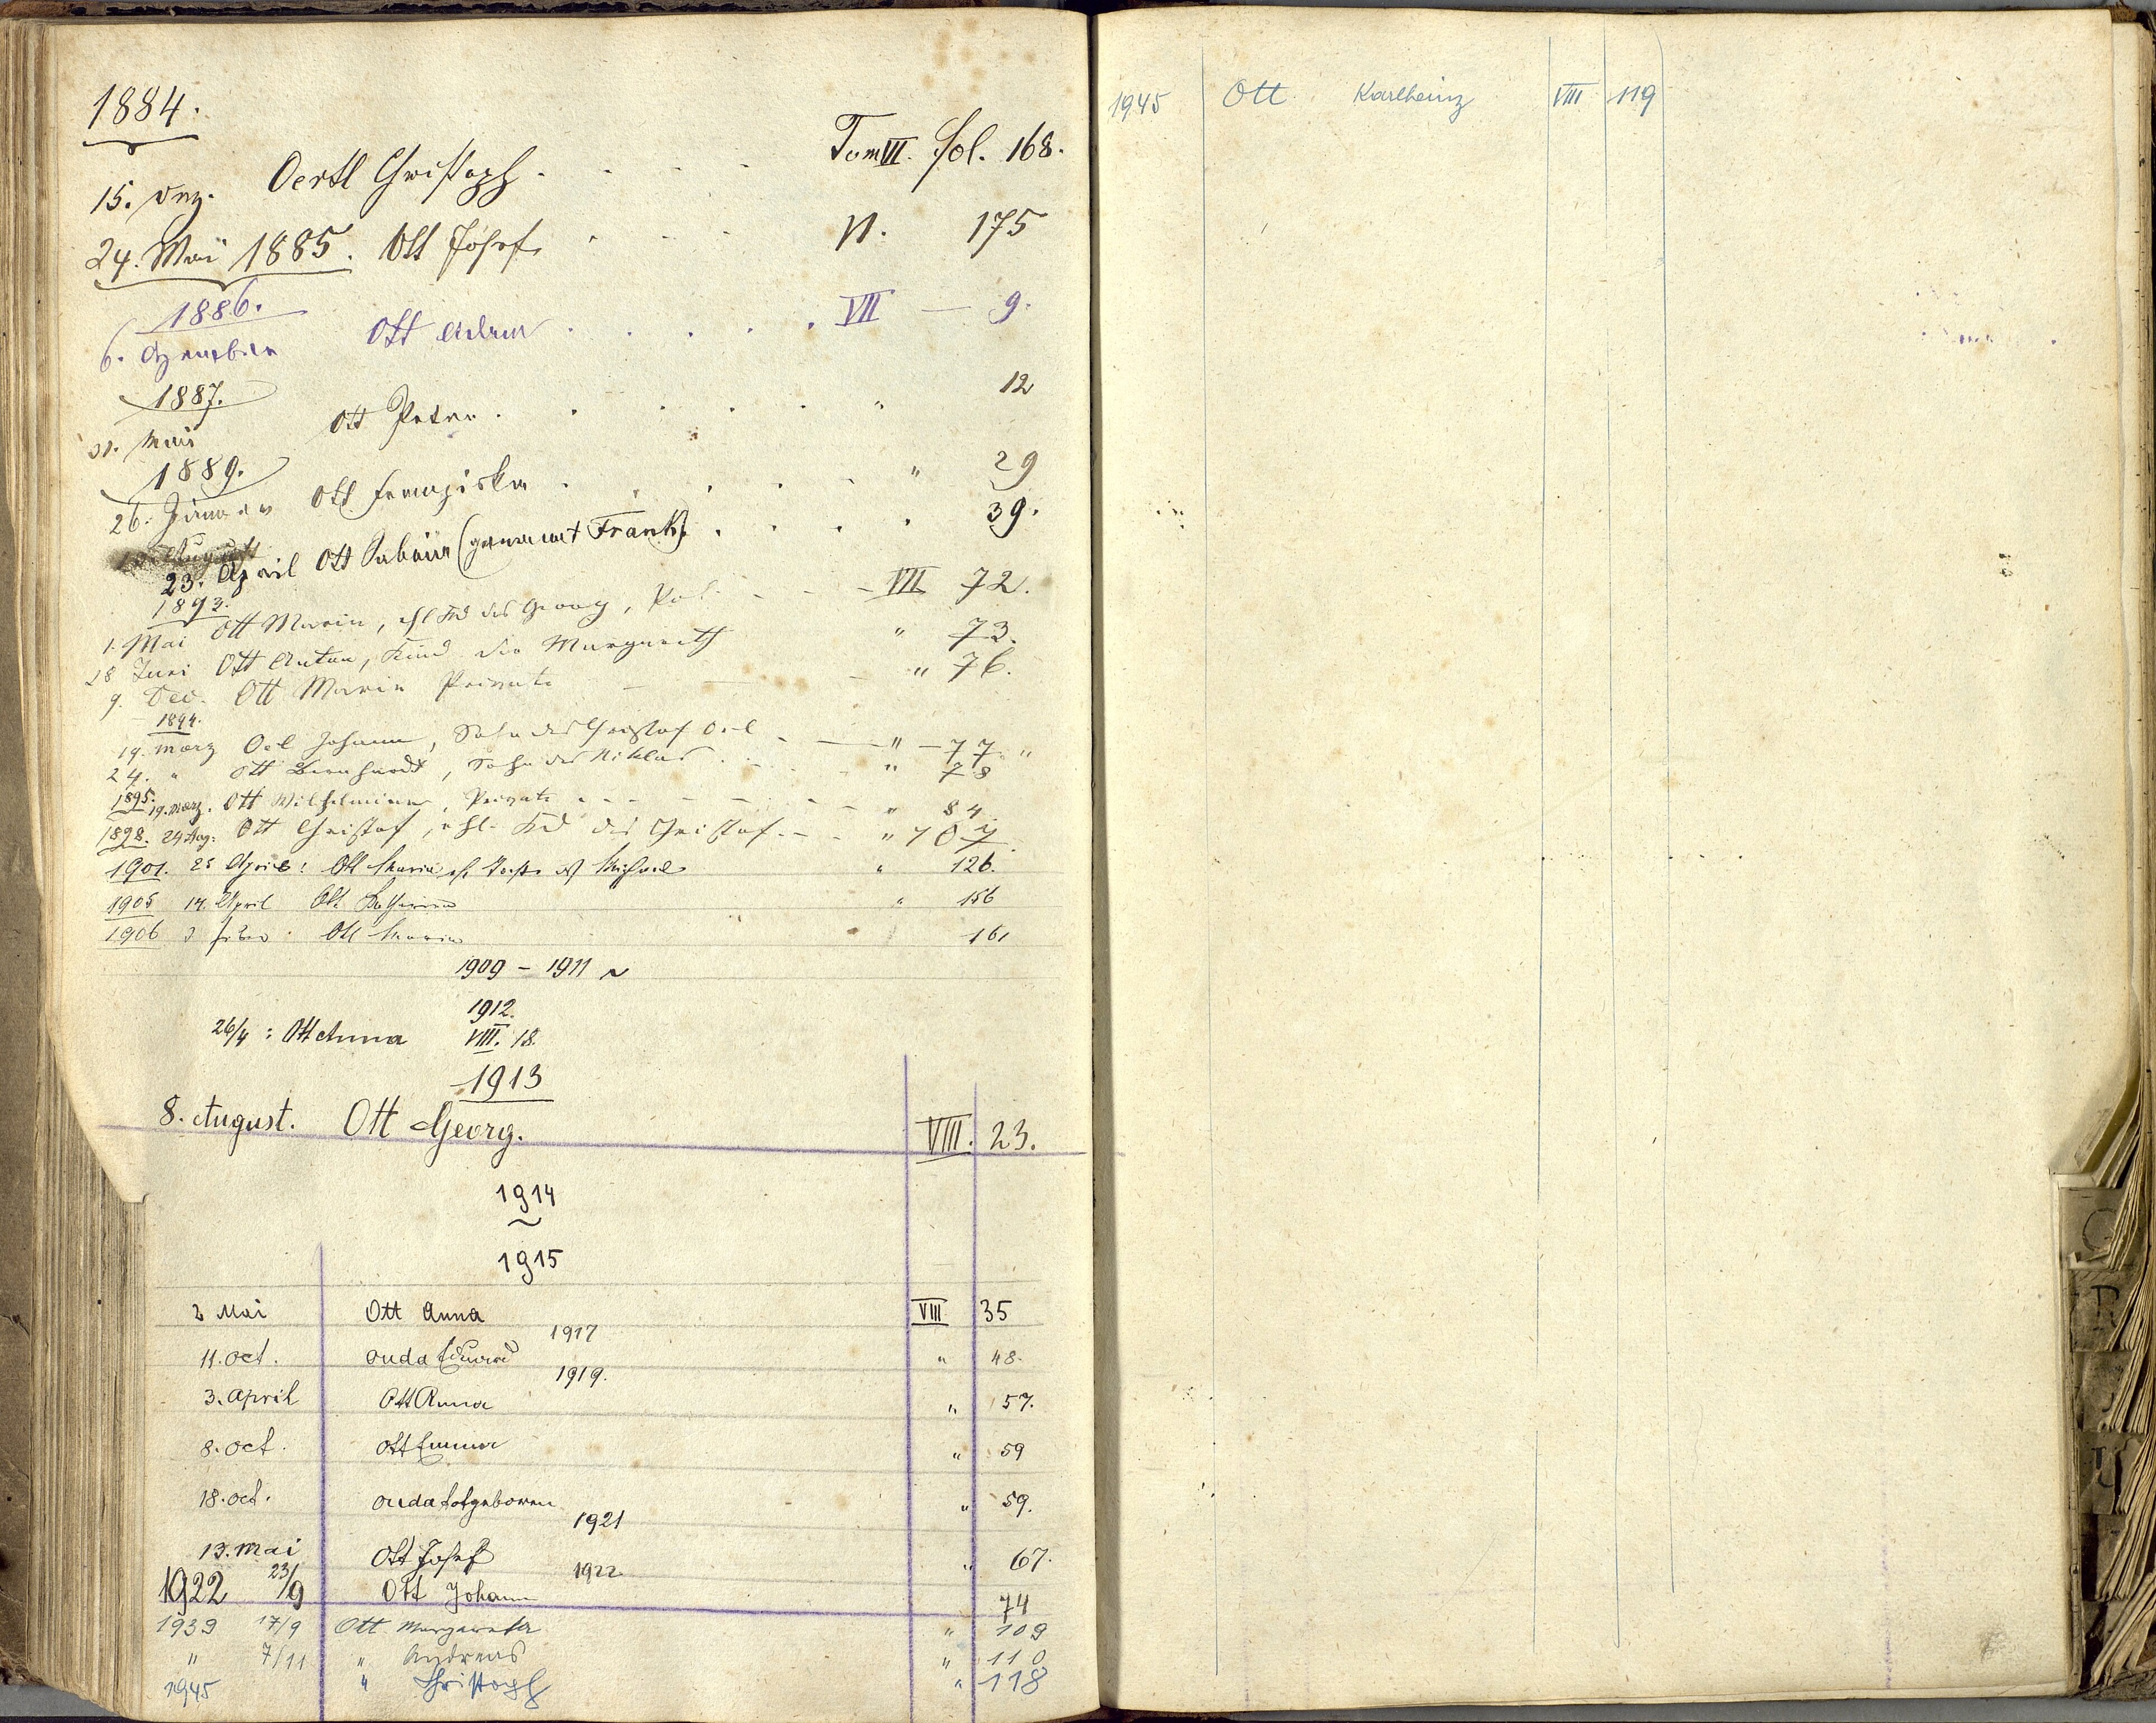 1884.
15. Dez. Oertl Christoph . . . . Tom VI. Fol. 168.
24. Mai 1885. Ott Josef . . . VI. 175
1886.
6. Dezember Ott Adam . . . . . VII — 9.
1887.
31. März Ott Peter . . . . . " 12
1889.
26. Jänner Ott Franziska . . . . . " 29
23. April Ott (genannt Frank) . . . . 39.
1893.
1. Mai Ott Maria, ehl Kd des Georg, - - - VII 72.
28 Juni Ott Anton, Kind der Margareth " 73.
9. Dec. Ott Maria Private — — - " 76.
1894.
19. März Oel Johann, Sohn des Christof Oel - — " — 77. "
24. " Ott Bernhardt, Sohn des Niklas . . . . " 78
1895. 19. März. Ott Wilhelmine, Private - - - - - " 84.
1898. 24 Aug. Ott Christof, ehl. Kd des Christof - - - " 107.
1901. 25 April: Ott Maria, ehl Tochter des Michael " 126.
1905 14. April Ott Katharina " 156
1906 3 Ott Maria 161
1909 – 1911 ~
1912.
26/4 : Ott Anna VIII. 18.
1913
8. August. Ott Georg. VIII. 23.
1914
~
1915
2 Mai Ott Anna VIII 35
1917
11. Oct. Ouda Eduard " 48.
1919.
3. April Ott Anna " 57.
8. Oct. Ott Emma " 59
18. Oct. Ouda totgeboren " 59.
1921
13. Mai Ott Josef " 67.
1922
1922 23/9 Ott Johann 74
1939 17/9 Ott Margareta " 109
" 7/11 " Andreas " 110
1945 " Christoph " 118
1945 Ott Karlheinz VIII 119